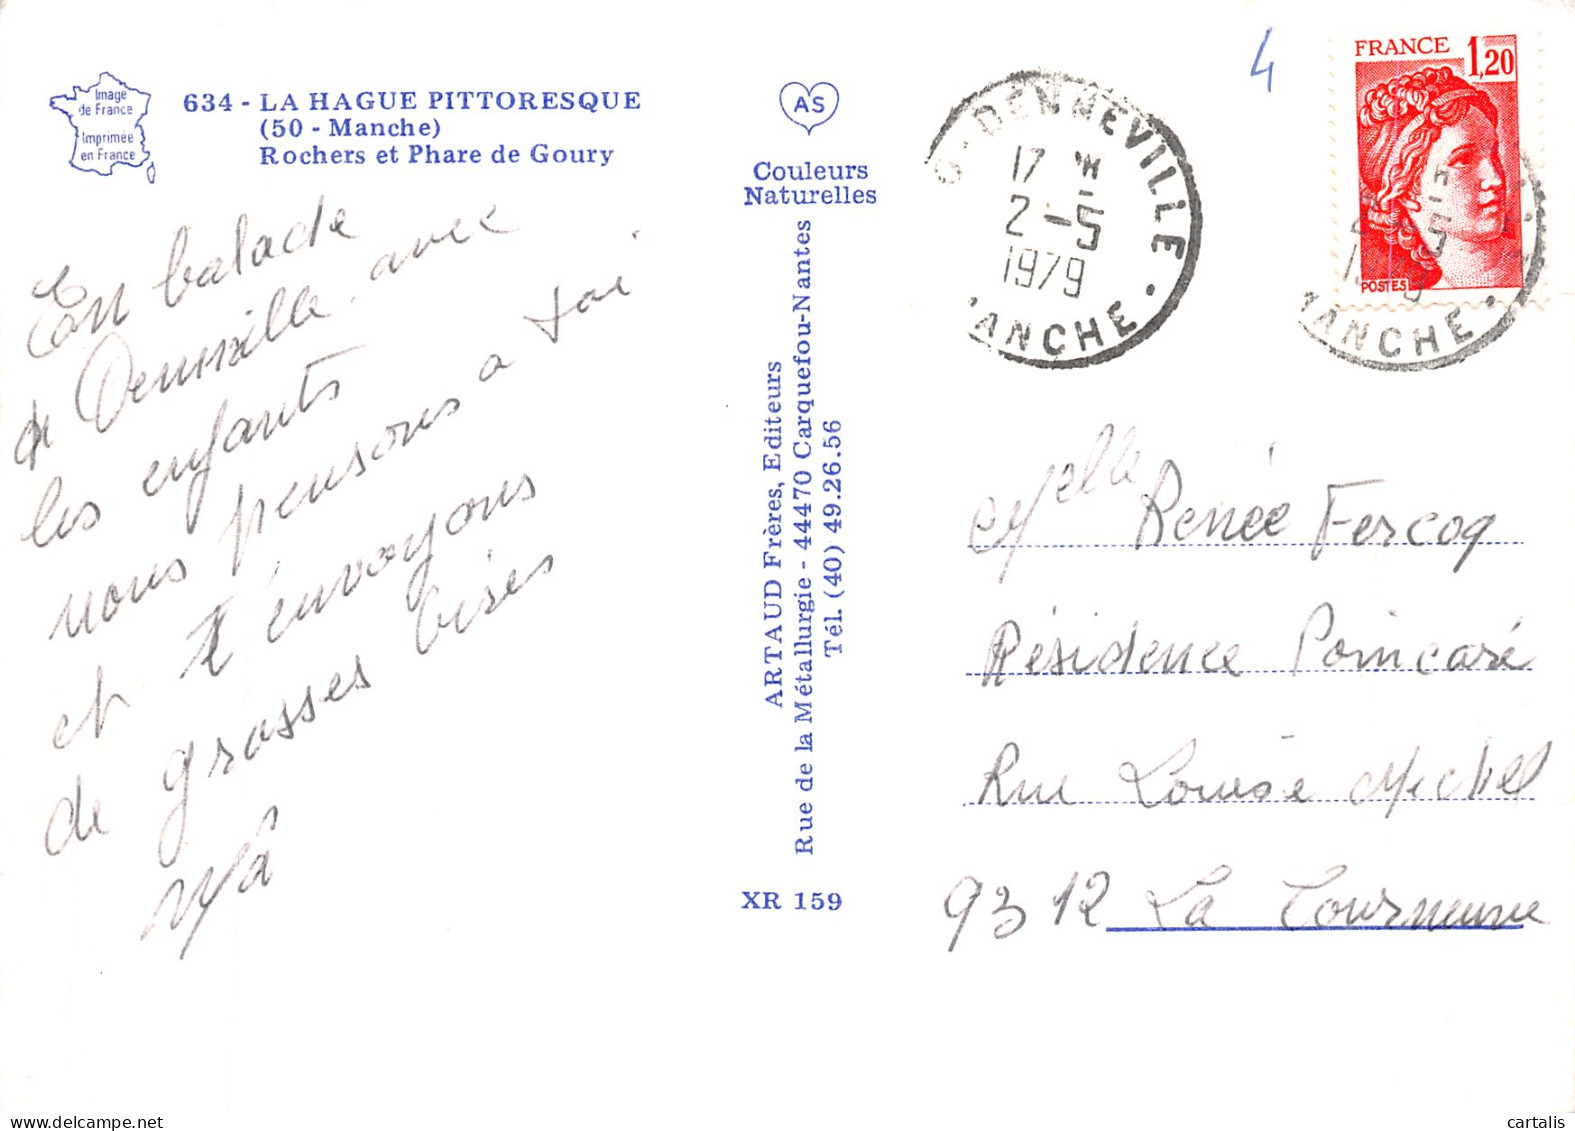 Image
de France
Imprimée
en France
634 - LA HAGUE PITTORESQUE
(50 - Manche)
Rochers et Phare de Goury
En balade
de Denneville avec
les enfants
nous pensons a toi.
et t'envoyons
de grosses bises
AS
Couleurs
Naturelles
ARTAUD Frères, Editeurs
Rue de la Métallurgie - 44470 Carquefou-Nantes
Tél. (40) 49.26.56
XR 159
DENNEVILLE
17 H
2 -5
1979
ANCHE
4
FRANCE 1,20
POSTES
ANCHE
Melle Renée Fercoq
Résidence Poincaré
Rue Louise Michel
9312 La Courneuve
cartalis